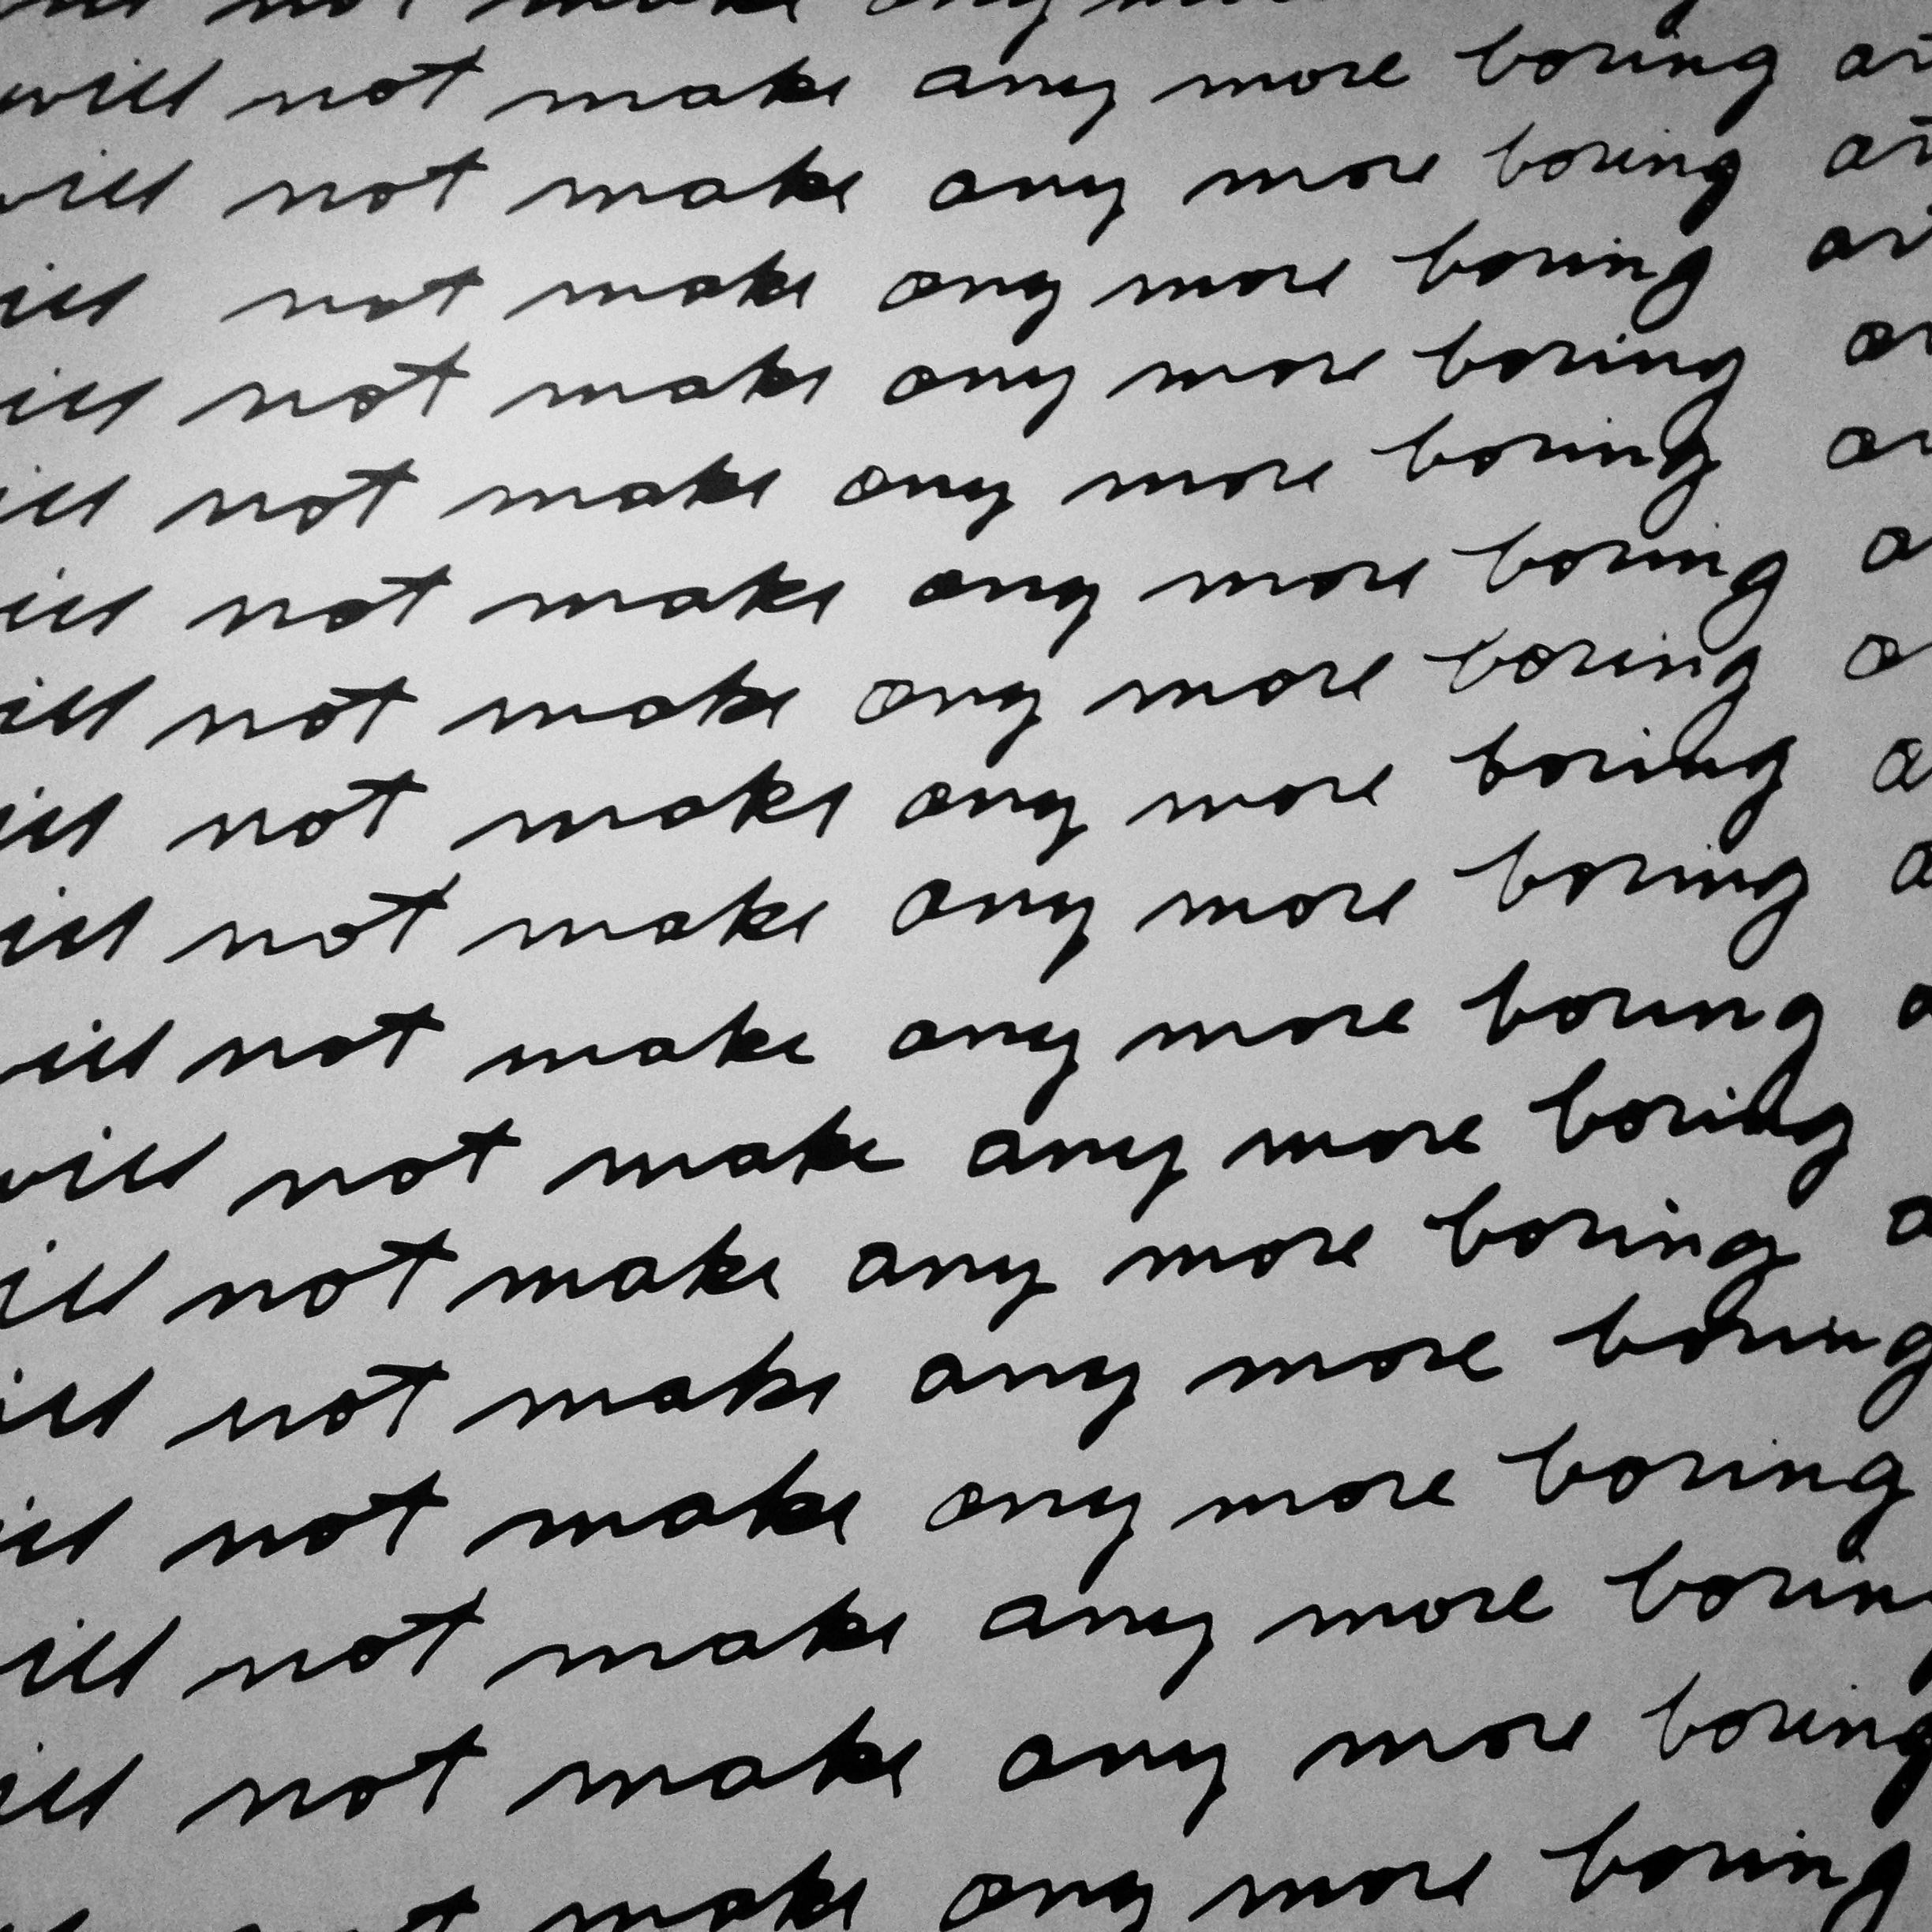 will not make any more boring
will not make any more boring
will not make any more boring
ill not make any more boring
ill not make any more boring
ill not make any more boring
ill not make any more boring
ill not make any more boring
ill not make any more boring
ill not make any more boring
ill not make any more boring
will not make any more boring
ill not make any more boring
ill not make any more boring
ill not make any more boring
ill not make any more borin
ill not make any more boring
not make any more boring